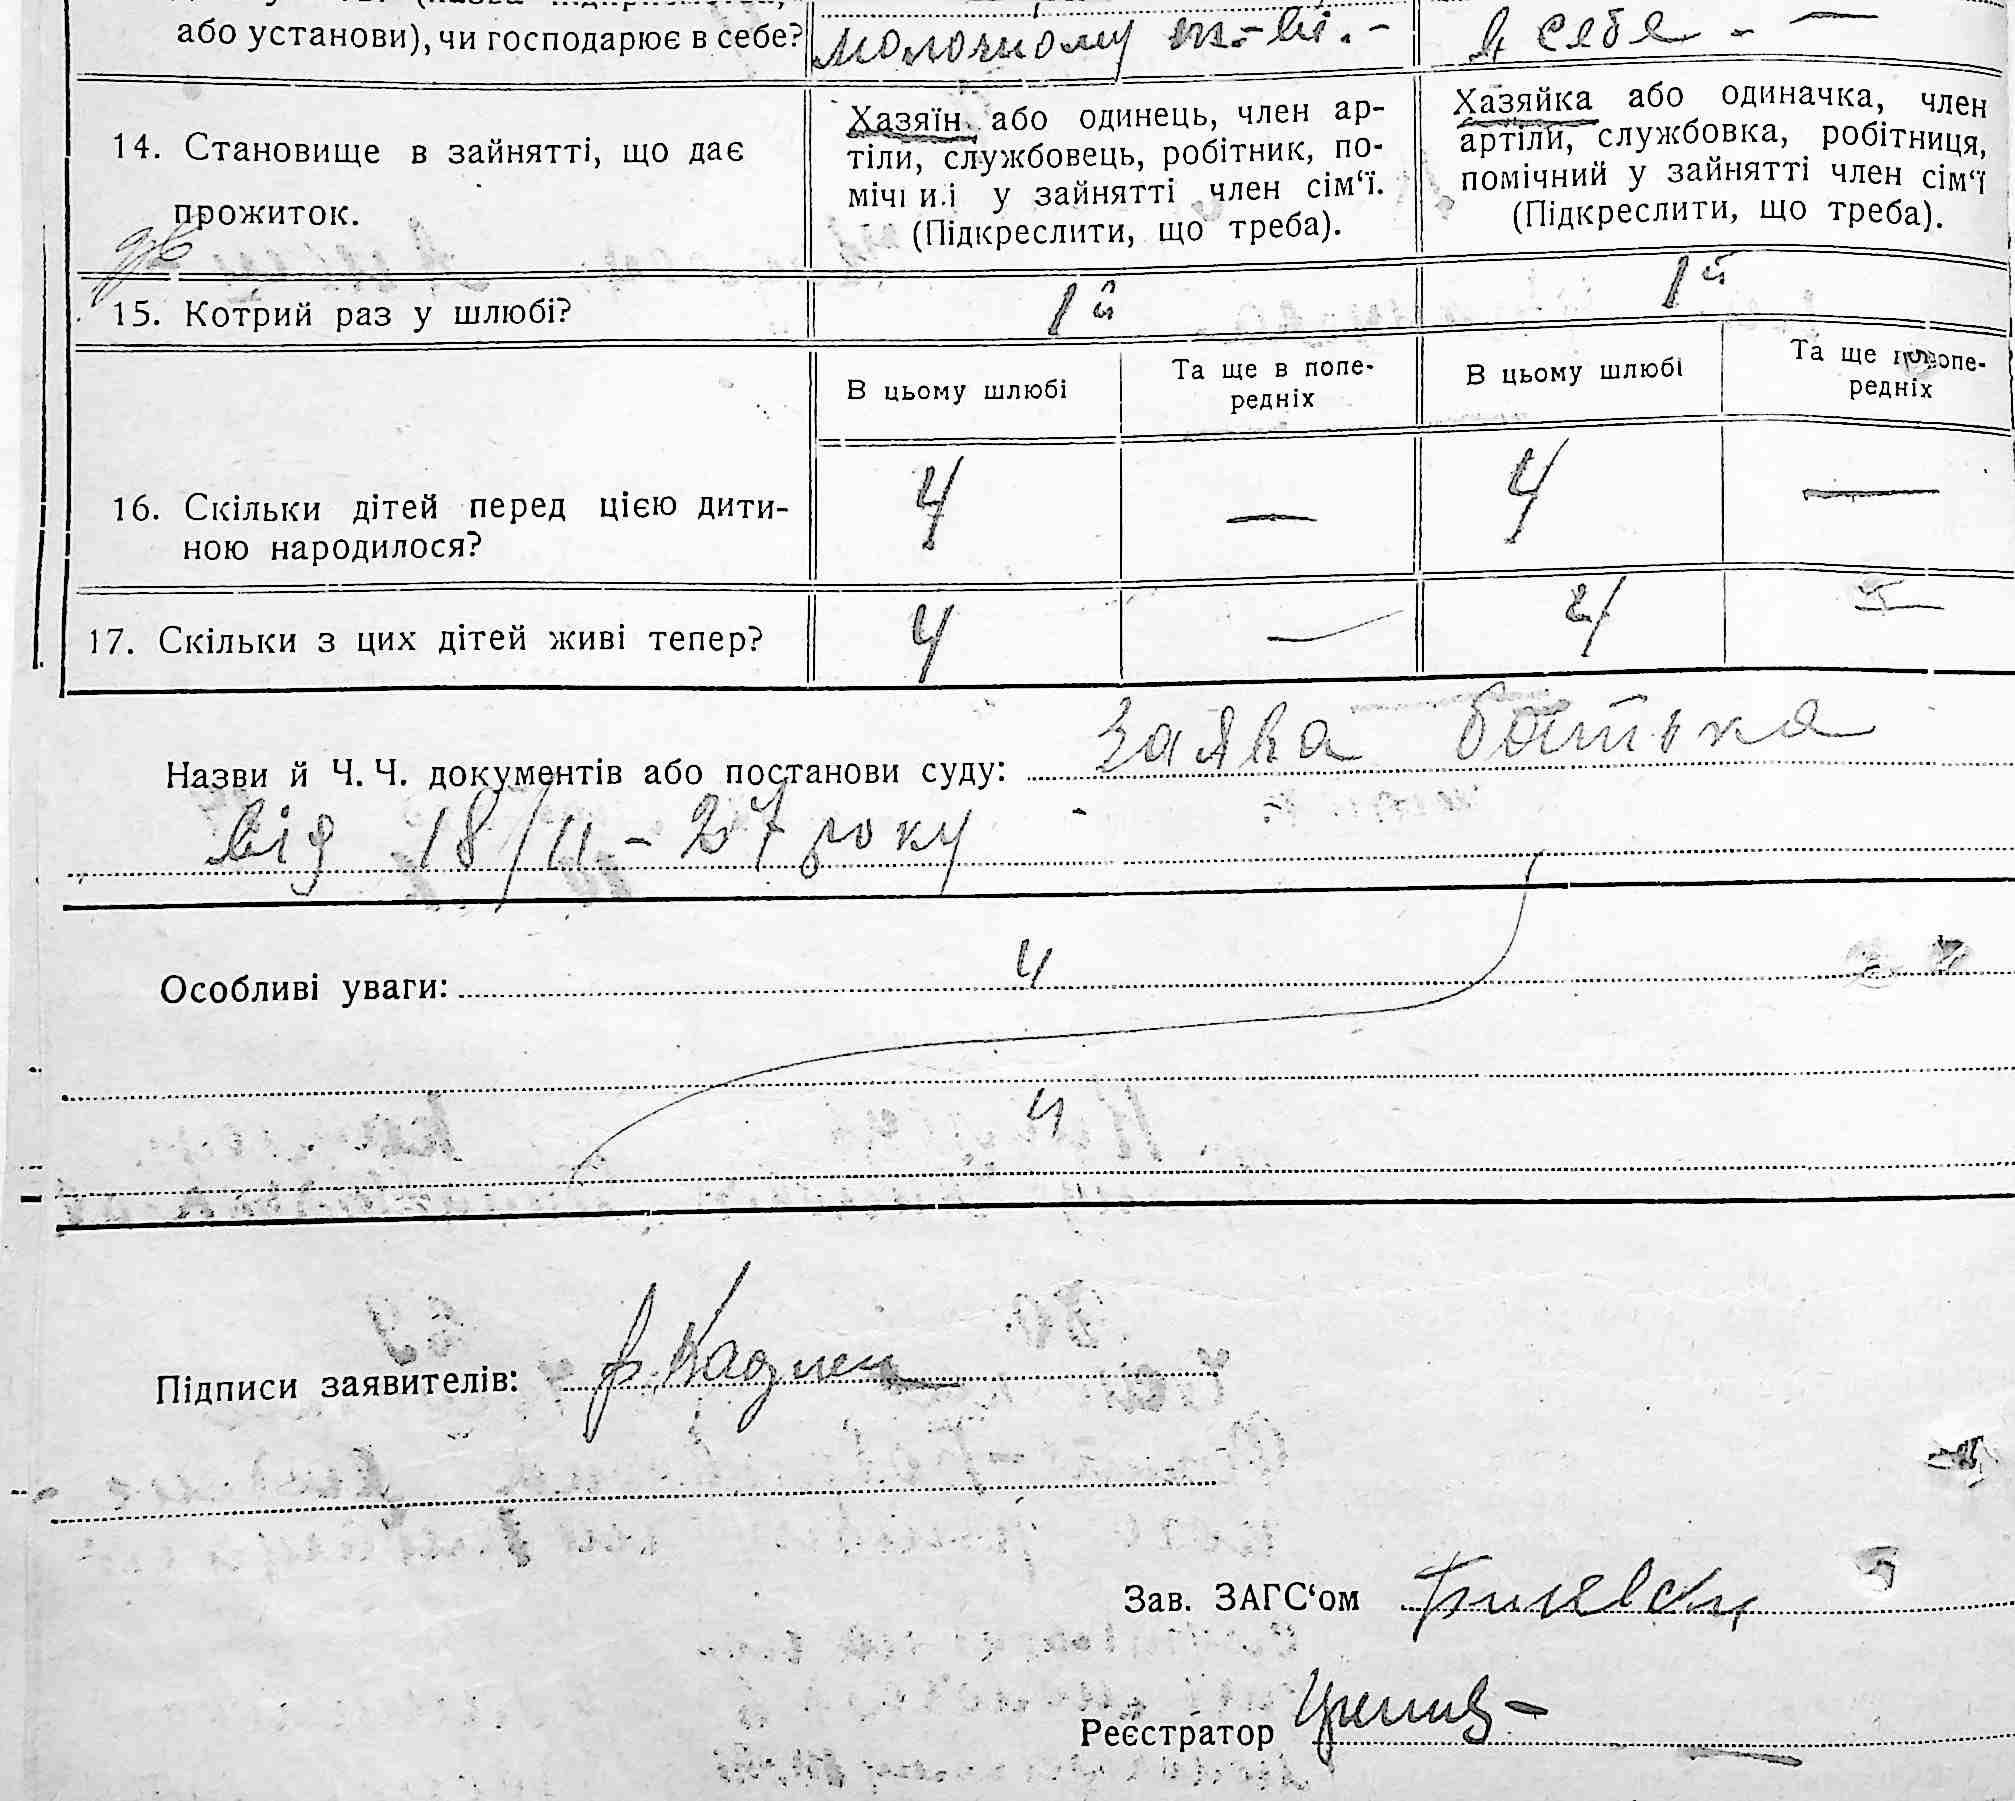 або установи), чи господарює в себе? молочному т-ві. - в себе -
14. Становище в зайнятті, що дає прожиток.
Хазяїн або одинець, член ар-
тіли, службовець, робітник, по-
мічн и.і у зайнятті член сім‘ї.
(Підкреслити, що треба).
Хазяйка або одиначка, член
артіли, службовка, робітниця,
помічний у зайнятті член сім‘ї
(Підкреслити, що треба).
15. Котрий раз у шлюбі? 1й 1й
В цьому шлюбі
Та ще в попе-
редніх
В цьому шлюбі
Та ще в попе-
редніх
16. Скільки дітей перед цією дити-
ною народилося? 4 — 4 —
17. Скільки з цих дітей живі тепер? 4 — 4 —
Назви й Ч. Ч. документів або постанови суду: Заява батька
від 18/II - 27 року
Особливі уваги:
Підписи заявителів:
Зав. ЗАГС‘ом
Реєстратор